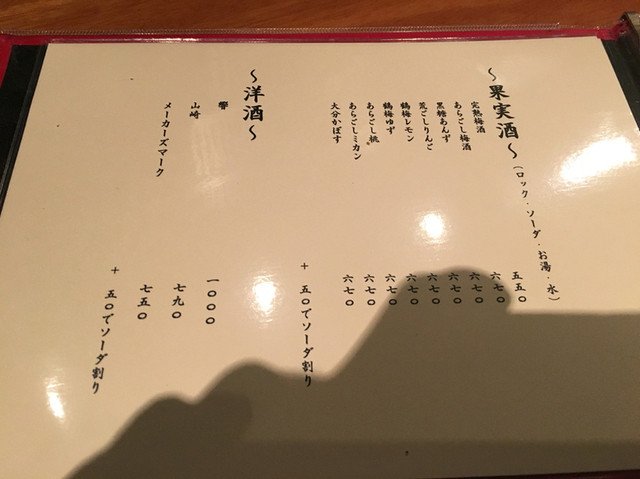 ～果実酒～(ロック・ソーダ・お湯・水)
完熟梅酒 五五〇
あらごし梅酒 六七〇
黒糖あんず 六七〇
荒ごしりんご 六七〇
鶴梅レモン 六七〇
鶴梅ゆず 六七〇
あらごし桃 六七〇
あらごしミカン 六七〇
大分かぼす 六七〇
＋ 五〇でソーダ割り
～洋酒～
響 一〇〇〇
山崎 七九〇
メーカーズマーク 七五〇
＋ 五〇でソーダ割り